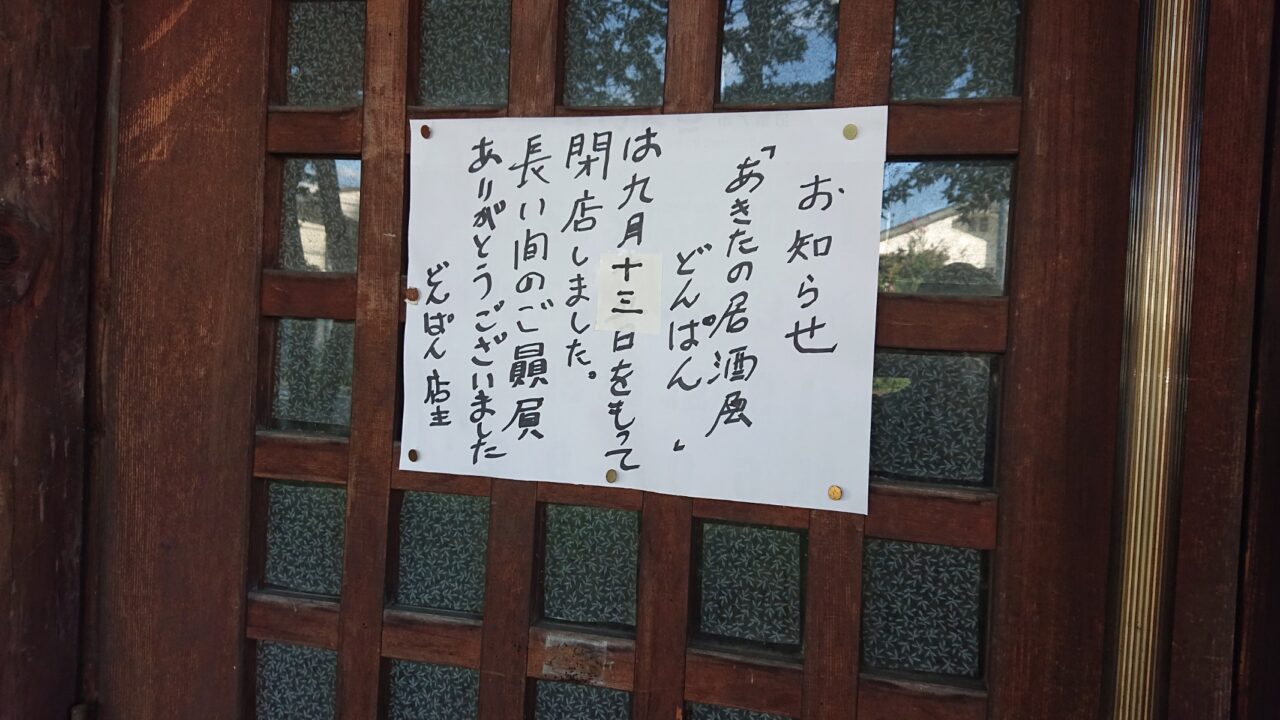 お知らせ
「あきたの居酒屋
どんぱん」
は九月十三日をもって
閉店しました。
長い間のご贔屓
ありがとうございました
どんぱん店主